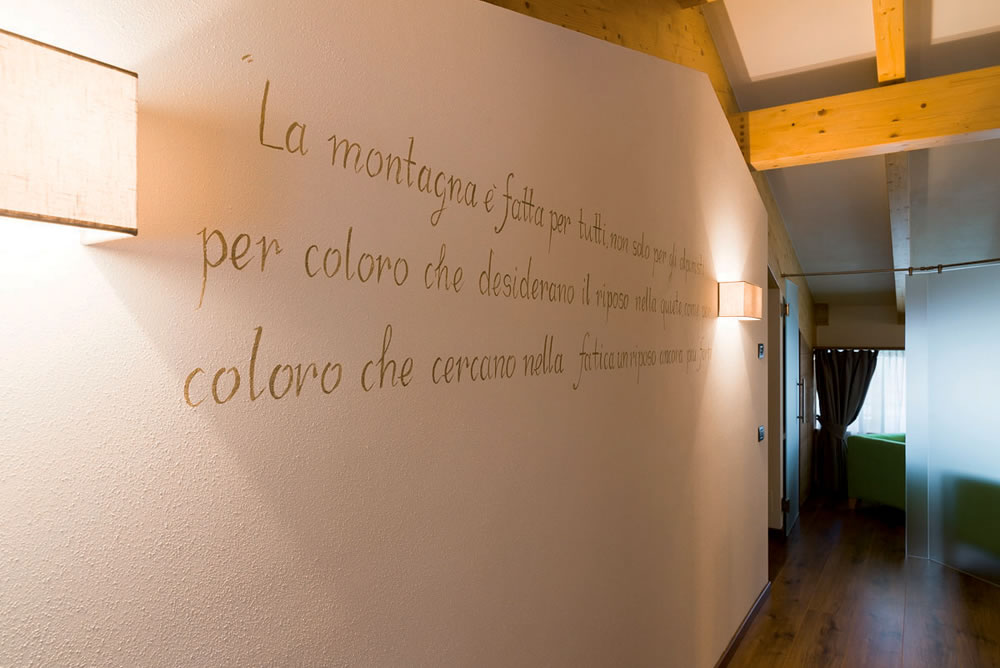 "La montagna è fatta per tutti, non solo per gli alpinisti
per coloro che desiderano il riposo nella quiete come per
coloro che cercano nella fatica un riposo ancora più forte